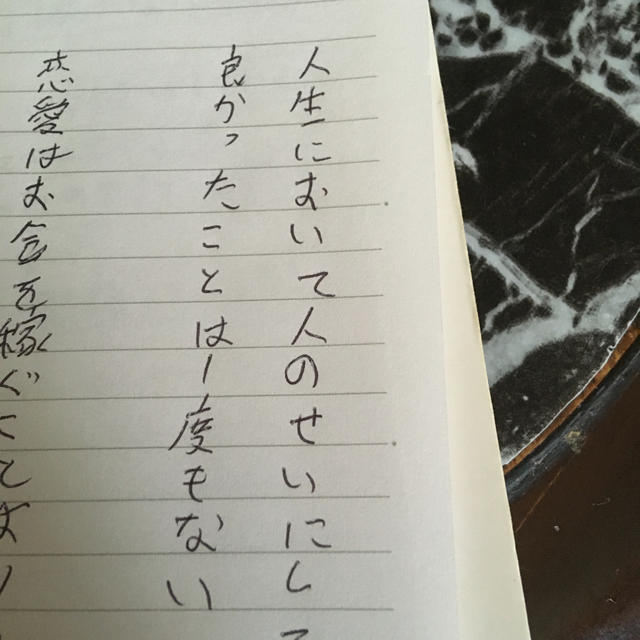 人生において人のせいにして
良かったことは一度もない
恋愛はお金を稼ぐことより